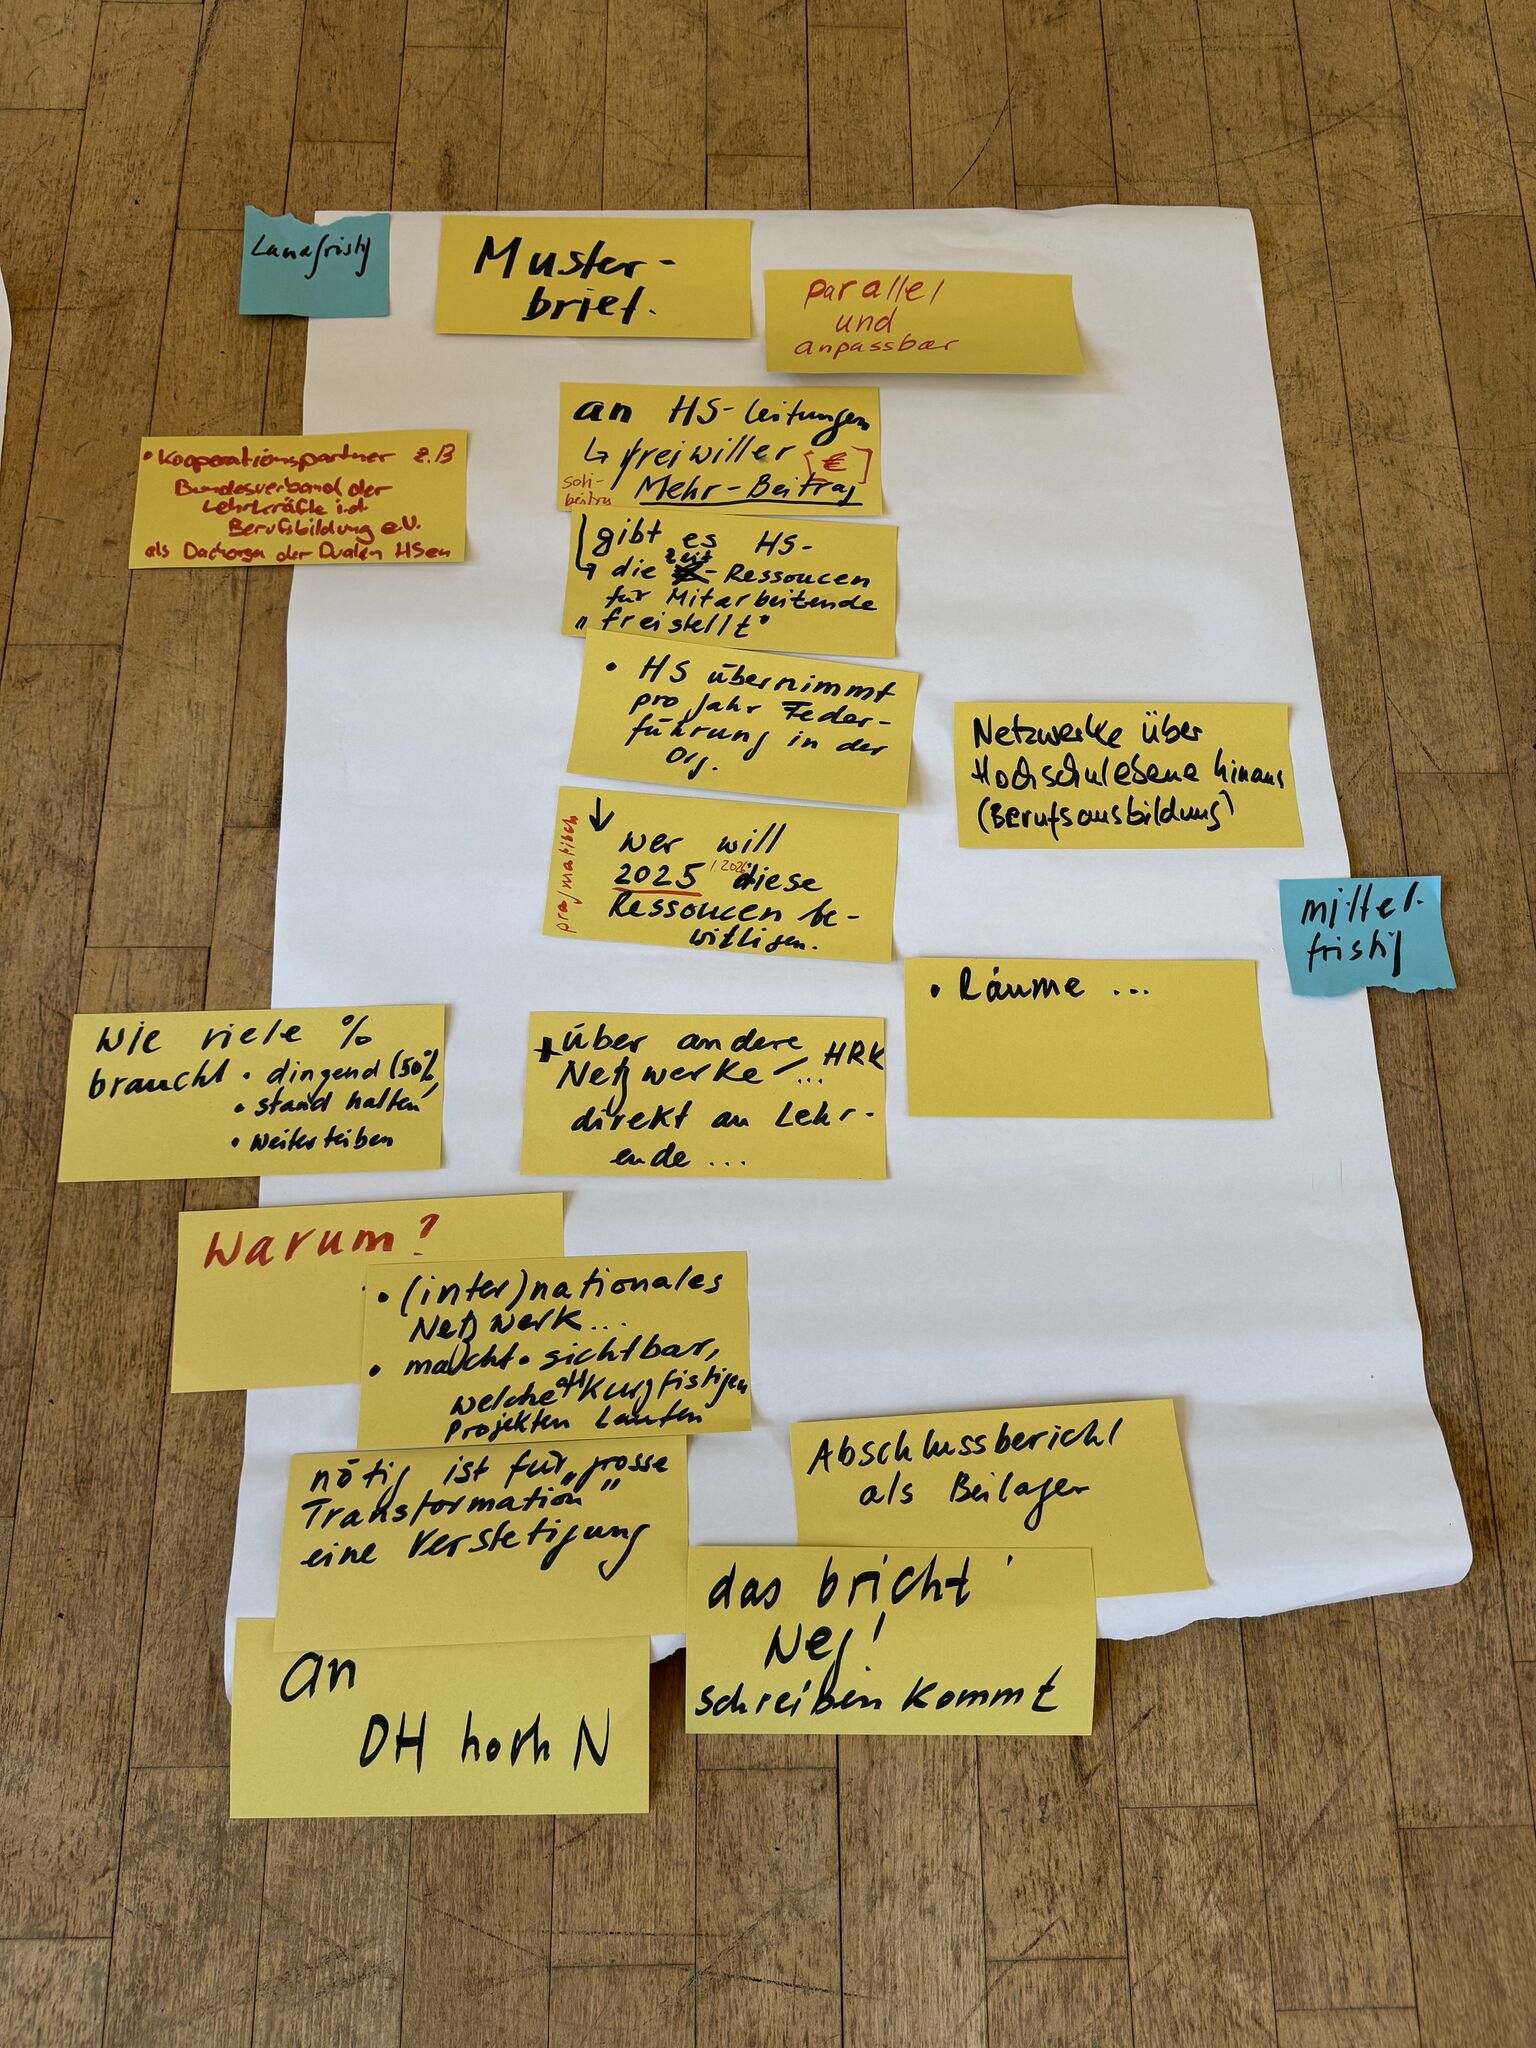 Langfristig
Muster-
brief.
parallel
und
anpassbar
• Kooperationspartner z.B
Bundesverband der
Lehrkräfte i.d.
Berufsbildung e.V.
als Dachorga der Dualen HSen
an HS-Leitungen
↳ freiwiller [€]
soli-
beitrag
Mehr-Beitrag
gibt es HS-
die zeit-Ressoucen
für Mitarbeitende
"freistellt"
• HS übernimmt
pro Jahr Feder-
führung in der
Org.
pragmatisch
↓ wer will
2025 /2026 diese
Ressoucen be-
willigen.
Netzwerke über
Hochschulebene hinaus
(Berufsausbildung)
mittel-
fristig
• Räume ...
Wie viele %
braucht • dingend (50%)
• stand halten
• weiterteiben
+ über andere
Netzwerke – ... HRK
direkt an Lehr-
ende ...
Warum?
• (inter)nationales
Netzwerk...
• macht • sichtbar,
welche oft kurzfistigen
Projekten Laufen
nötig ist für „grosse
Transformation"
eine Verstetigung
Abschlussbericht
als Beilage
das bricht
Neg!
schreiben kommt
an
DH hoch N